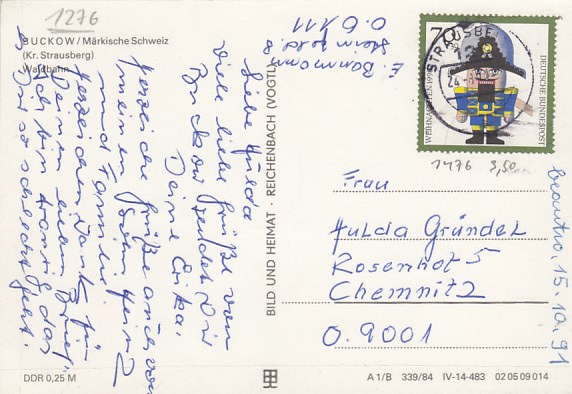 1276
BUCKOW / Märkische Schweiz
(Kr. Strausberg)
Waldbahn
E.
O. 6111
Liebe Hulda
viele liebe Grüße von
Buckow sendet Dir
Deine Erika.
Herzliche Grüße auch von
meinem Sohn Heinz
und Familie.
Herzlichen Dank für
Deinen Brief,
ich bin traurig das
es Dir so schlecht geht.
DDR 0,25 M
BILD UND HEIMAT · REICHENBACH (VOGTL
70
STRAUSBE
WEIHNACHTEN 1990
DEUTSCHE BUNDESPOST
1476 3,50
Frau
Hulda Gründel
Rosenhof 5
Chemnitz
O. 9001
beantw. 15.10.91
A 1/B 339/84 IV-14-483 02 05 09 014